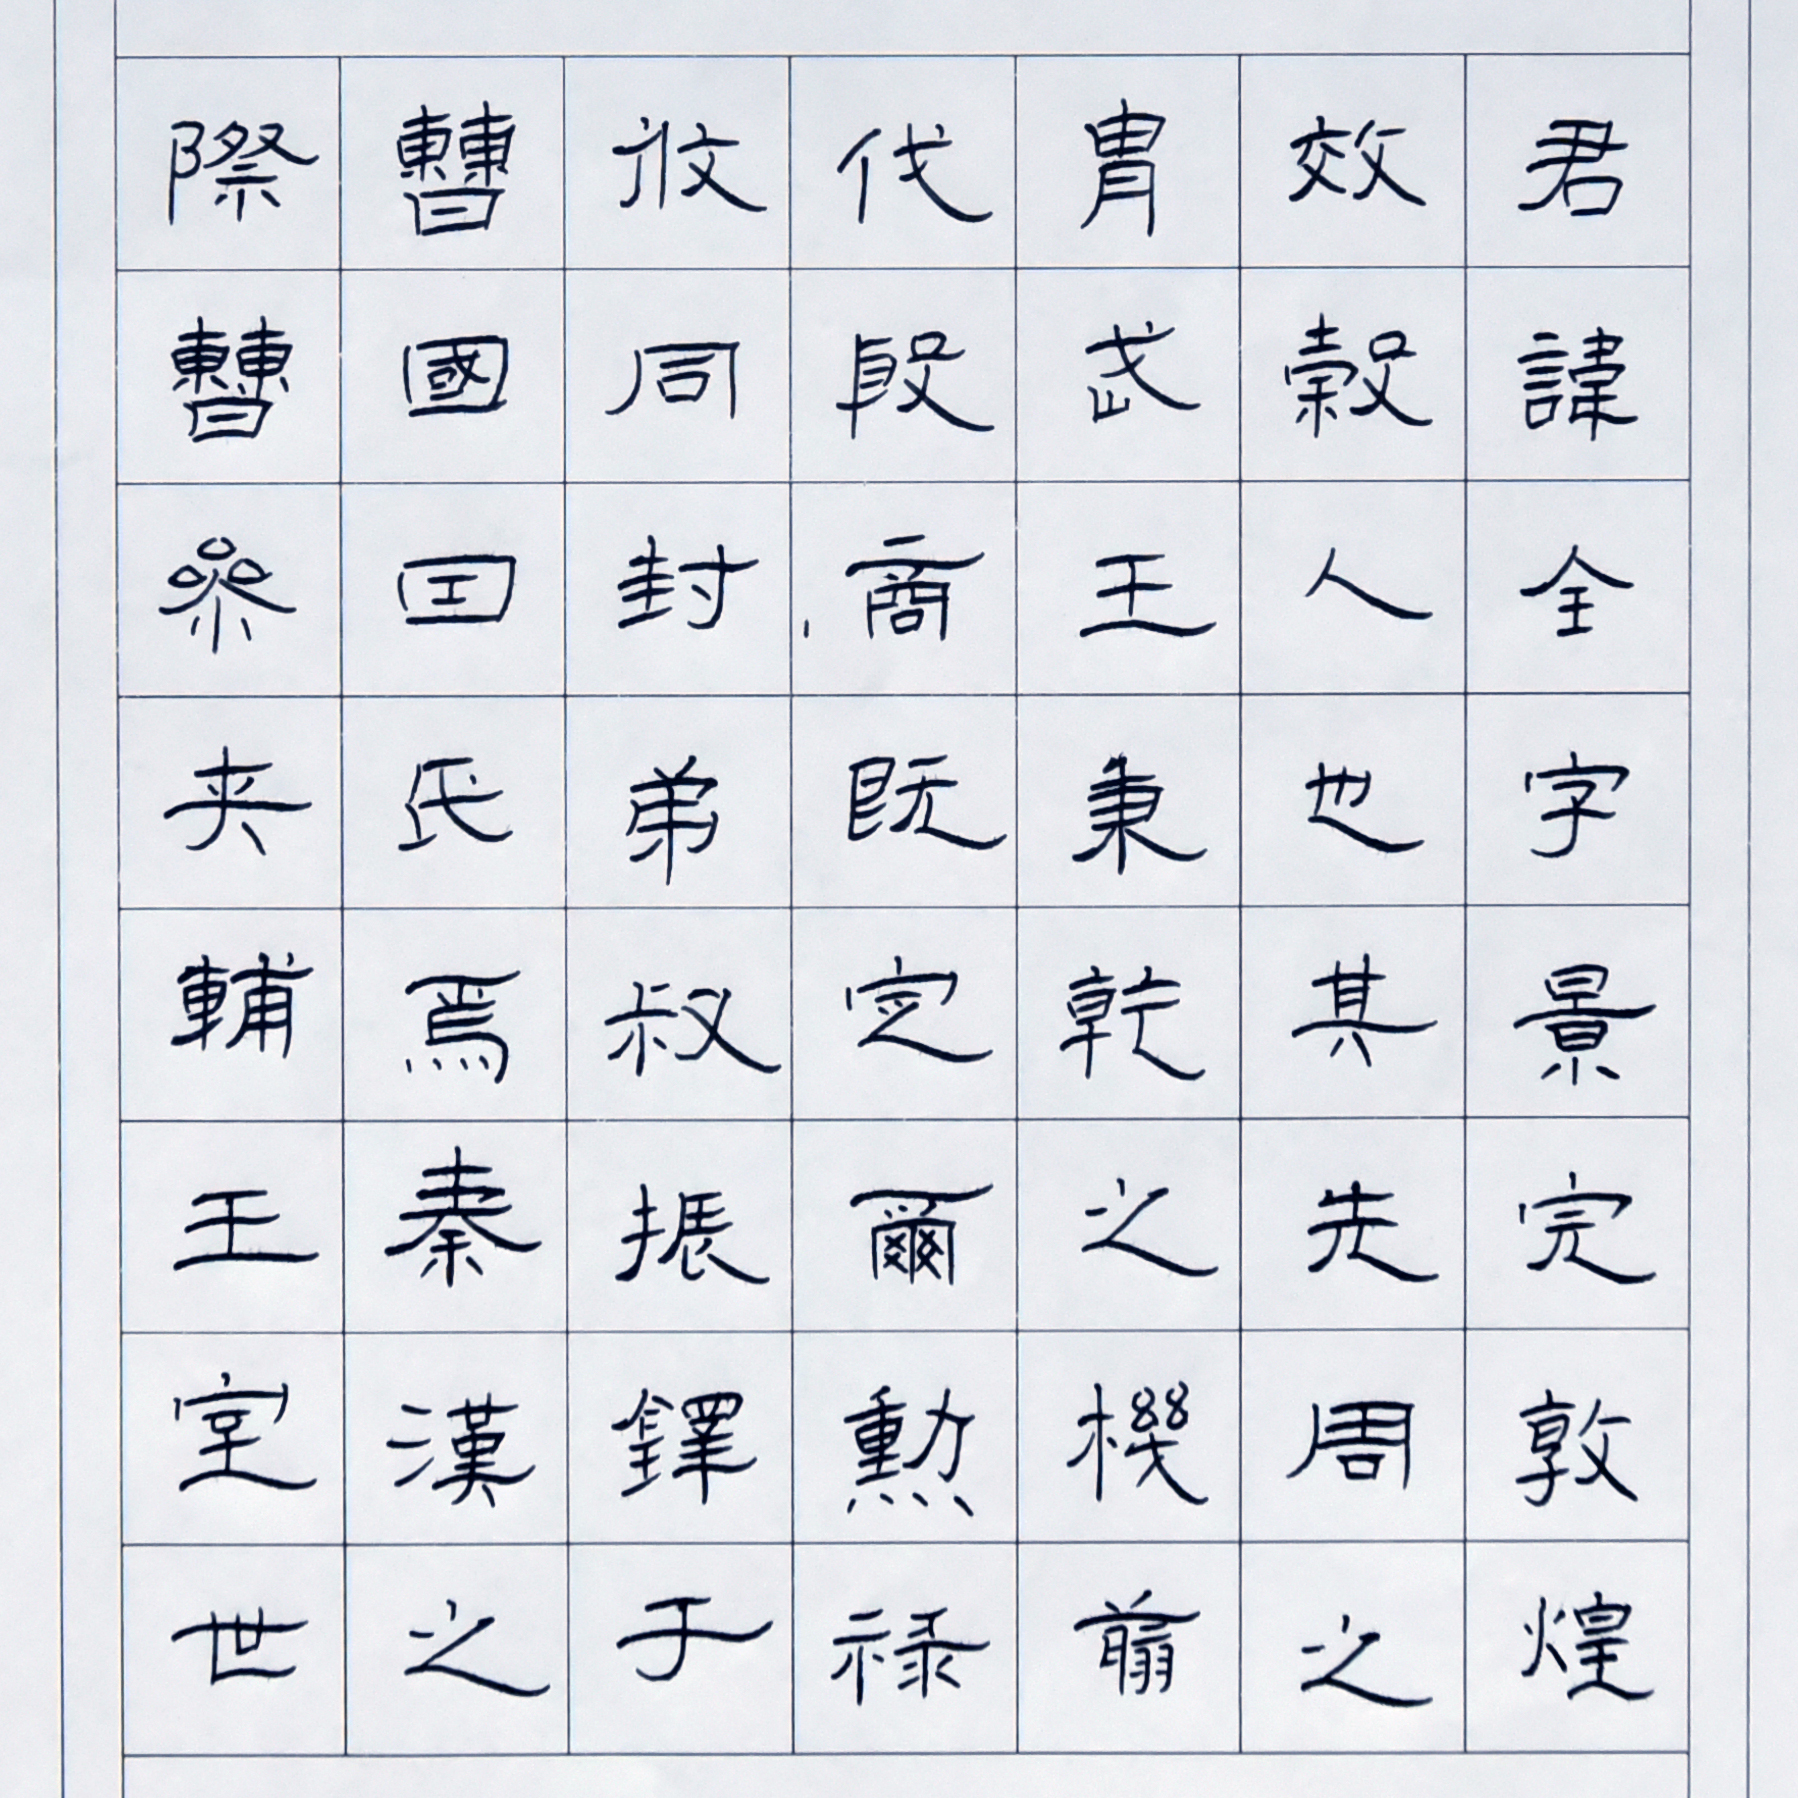 君諱全字景完敦煌
效穀人也其先周之
冑武王秉乾之機翦
代殷商既定爾勳祿
攸同封弟叔振鐸于
曹國因氏焉秦漢之
際曹參夾輔王室世